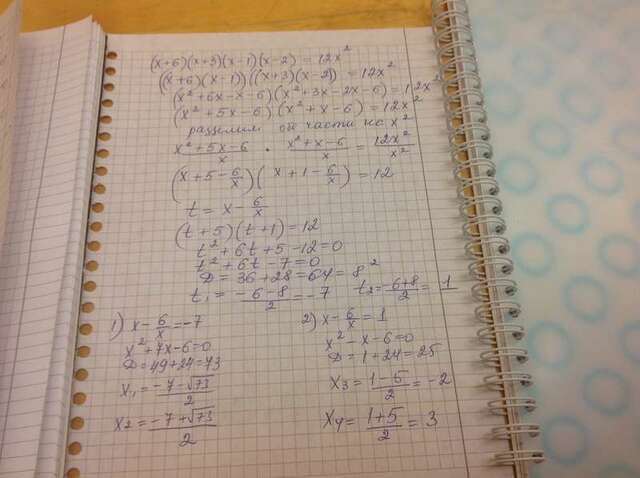 (x+6)(x+3)(x-1)(x-2) = 12x²
((x+6)(x-1))((x+3)(x-2)) = 12x²
(x²+6x-x-6)(x²+3x-2x-6) = 12x²
(x²+5x-6)(x²+x-6) = 12x²
разделим об части на x²
(x²+5x-6)/x · (x²+x-6)/x = 12x²/x²
(x+5-6/x)(x+1-6/x) = 12
t = x - 6/x
(t+5)(t+1) = 12
t²+6t+5-12=0
t²+6t-7=0
D = 36+28=64=8²
t₁ = (-6-8)/2 = -7 t₂ = (-6+8)/2 = 1
1) x - 6/x = -7
x²+7x-6=0
D=49+24=73
x₁ = (-7-√73)/2
x₂ = (-7+√73)/2
2) x - 6/x = 1
x²-x-6=0
D=1+24=25
x₃ = (1-5)/2 = -2
x₄ = (1+5)/2 = 3